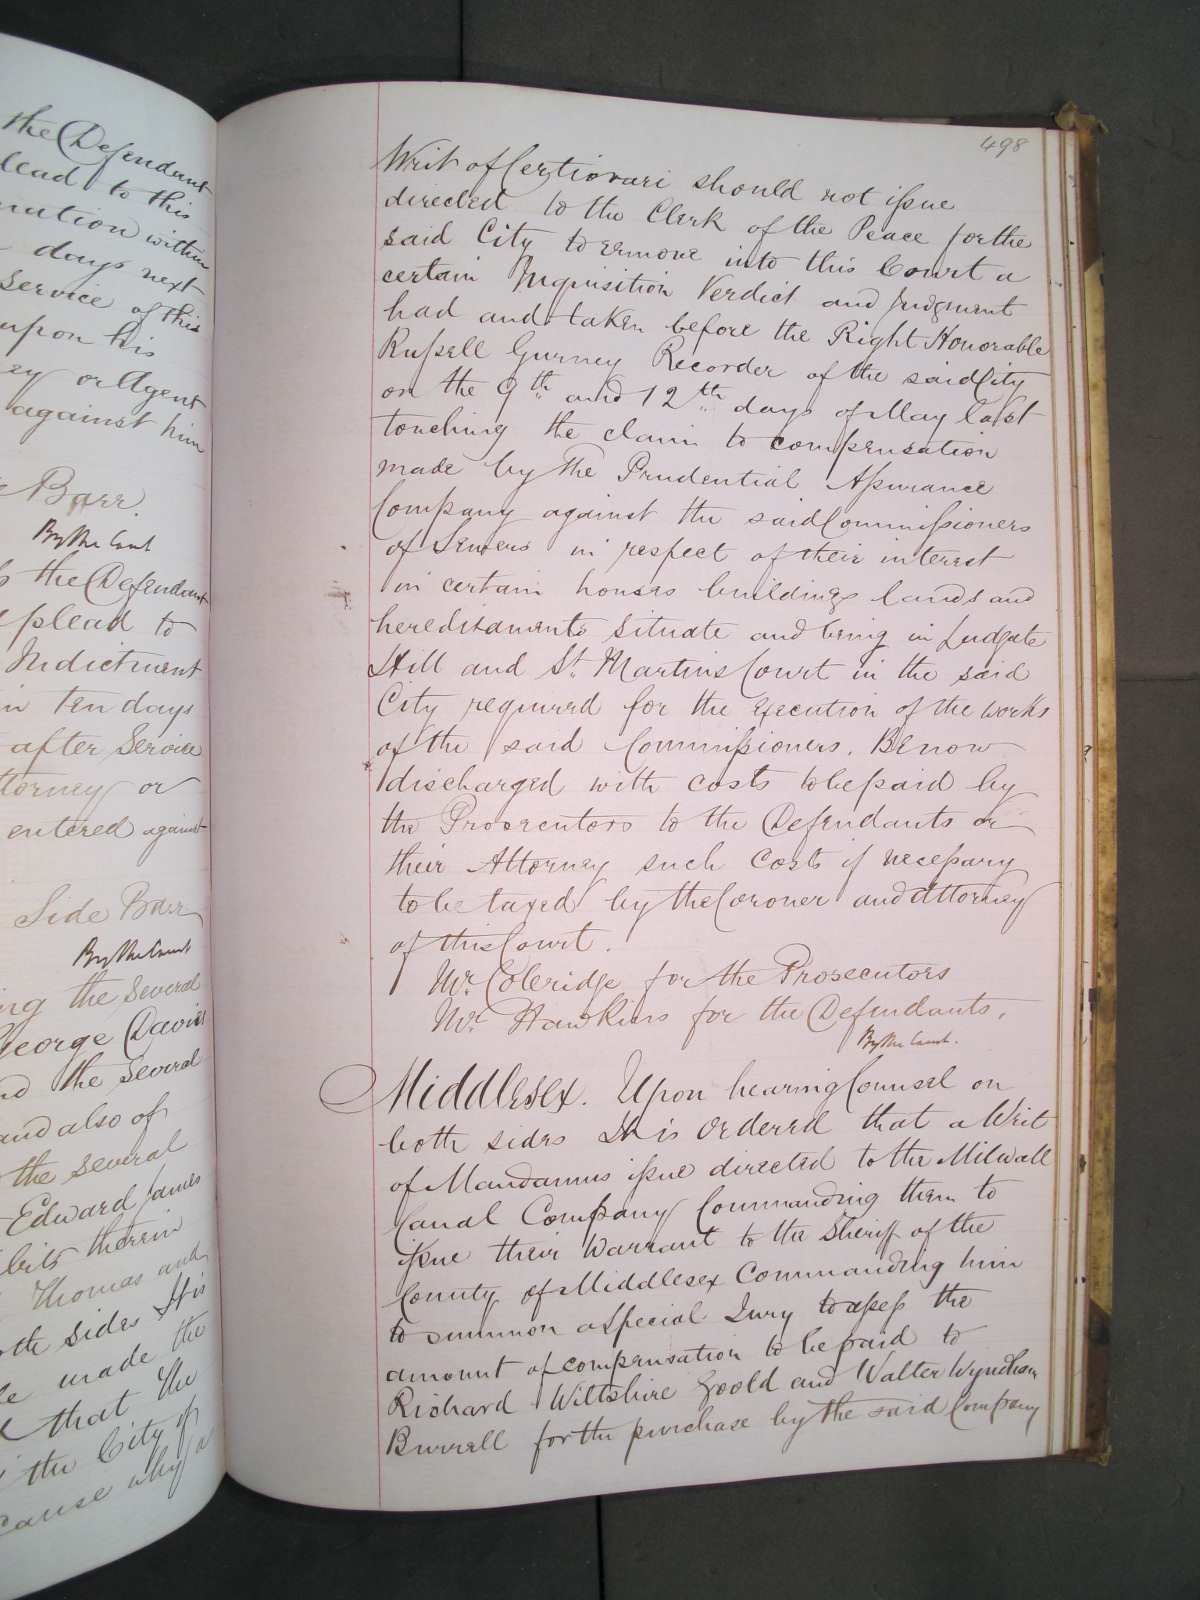 the Defendant
lead to this
nation within
days next
service of this
upon his
ey or Agent
against him
Barr.
By the Court
the Defendant
plead to
Indictment
in ten days
after Service
ttorney or
entered against
Side Barr
By the Court
ng the several
George David
nd the several
and also of
the several
Edward James
bits therein
Thomas and
oth sides It is
le made the
that the
the City of
cause why a
498
Writ of Certiorari should not issue
directed to the Clerk of the Peace for the
said City to remove into this Court a
certain Inquisition Verdict and Judgment
had and taken before the Right Honorable
Russell Gurney Recorder of the said City
on the 9th and 12th days of May last
touching the claim to compensation
made by The Prudential Assurance
Company against the said Commissioners
of Sewers in respect of their interest
in certain houses buildings lands and
hereditaments situate and being in Ludgate
Hill and St. Martins Court in the said
City required for the execution of the works
of the said Commissioners. Be now
discharged with costs to be paid by
the Prosecutors to the Defendants or
their Attorney such Costs if necessary
to be taxed by the Coroner and Attorney
of this Court.
Mr. Coleridge for the Prosecutors
Mr. Hawkins for the Defendants.
By the Court.
Middlesex. Upon hearing Counsel on
both sides It is Ordered that a Writ
of Mandamus issue directed to the Milwall
Canal Company Commanding them to
issue their Warrant to the Sheriff of the
County of Middlesex Commanding him
to summon a Special Jury to assess the
amount of compensation to be paid to
Richard Wiltshire Goold and Walter Wyndham
Burrell for the purchase by the said Company